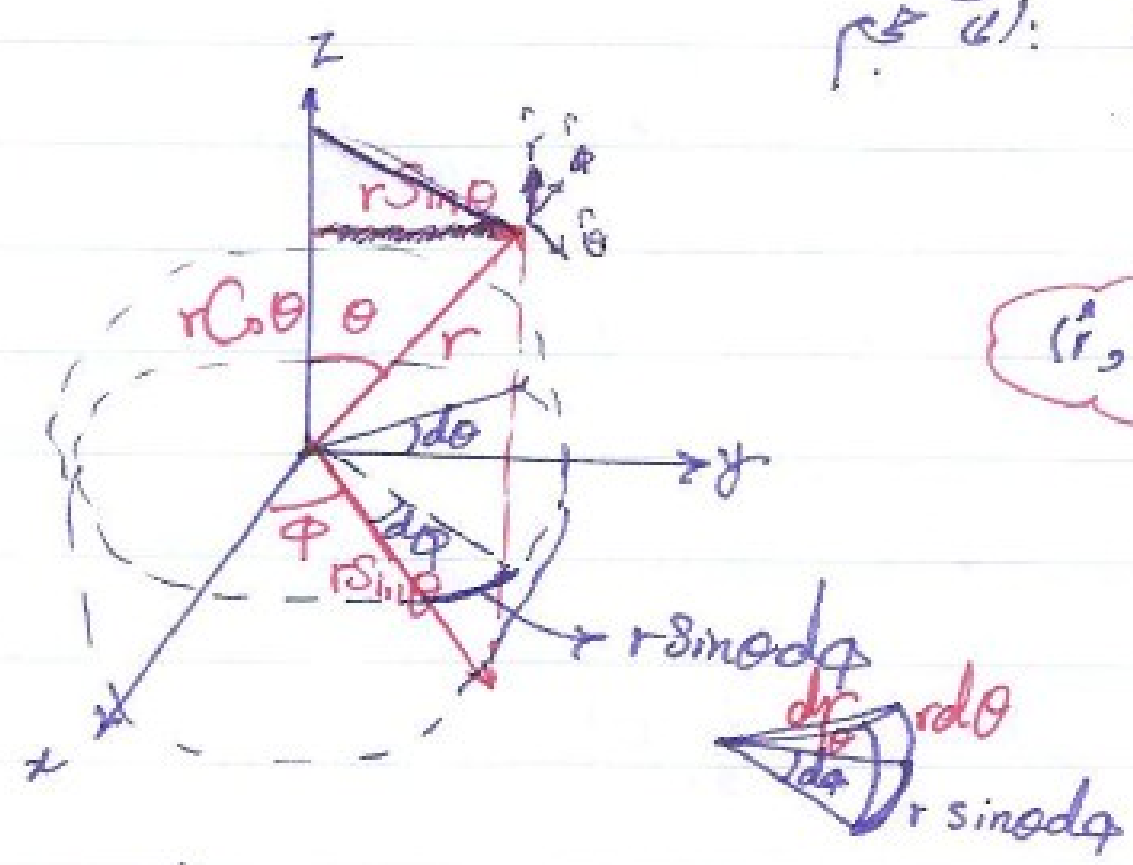 z
r̂
φ̂
r Sinθ
θ̂
r Cosθ
θ
r
(r̂,
dθ
y
φ
dφ
r Sinθ
r Sinθdφ
x
dr
rdθ
θ
dφ
r sinθdφ